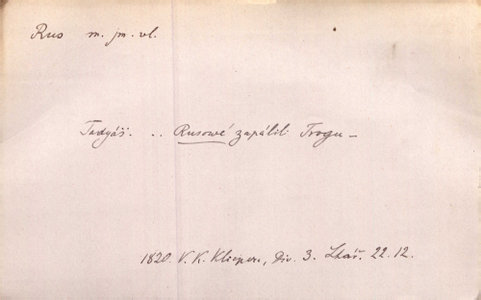 Rus m. jm. vl.
Tadyáš. .. Rusowé zapálili Trogu –
1820. V. K. Klicpera, Div. 3. Lhář. 22.12.